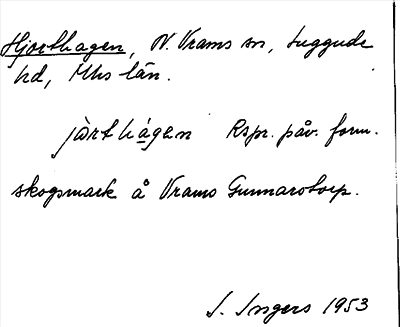 Hjorthagen, N. Vrams sn, Luggude
hd, Mhs län.
jàrthágen Rspr. påv. form.
skogsmark å Vrams Gunnarstorp.
I. Ingers 1953